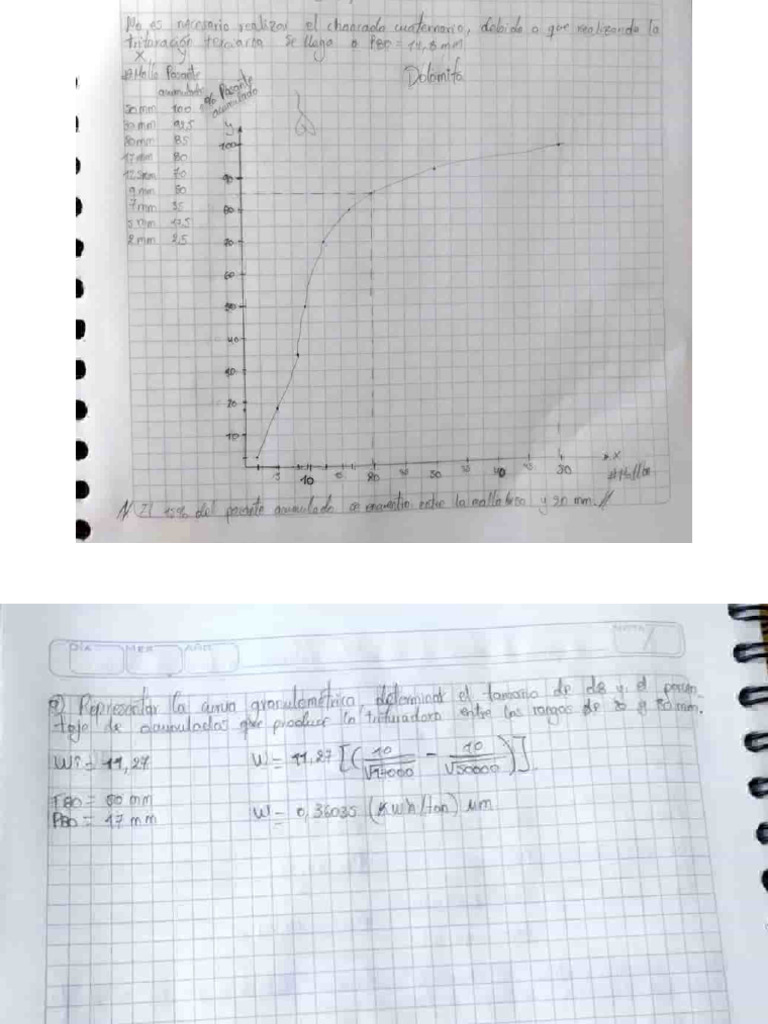 No es necesario realizar el chancado cuaternario, debido a que realizando la
trituración terciaria se llega a P80 = 14,8 mm
X Y
Malla Pasante
acumulado
% Pasante
acumulado
Dolomita
50mm 100
30mm 92,5
20mm 85
17mm 80
12,5mm 70
9mm 50
7mm 35
5mm 17,5
2mm 2,5
y
100
90
80
70
60
50
40
30
20
10
5 10 20 30 40 50
x
Malla
del pasante acumulado se encuentra entre la malla y 20 mm.
DÍA MES AÑO
NOTA
Representar la curva granulométrica, determinar el tamaño de d8 y el porcen-
taje de acumulados que produce la trituradora entre los rangos de 20 y 50 mm.
Wi = 11,27
W = 11,27 [(10/√17000 - 10/√50000)]
F80 = 50 mm
P80 = 17 mm
W = 0,36035 (Kwh/ton) um